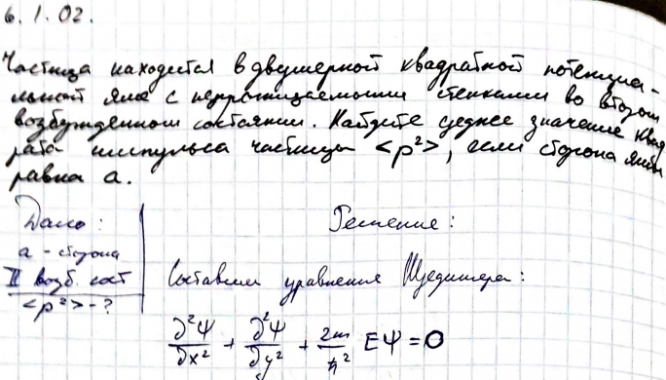 6.1.02.
Частица находится в двумерной квадратной потенциа-
льной яме с непроницаемыми стенками во втором
возбужденном состоянии. Найдите среднее значение квад
рата импульса частицы <p²>, если сторона ямы
равна a.
Дано:
Решение:
a - сторона
II возб. сост
<p²> - ?
Составим уравнение Шредингера:
∂²Ψ/∂x² + ∂²Ψ/∂y² + 2m/ħ² EΨ = 0